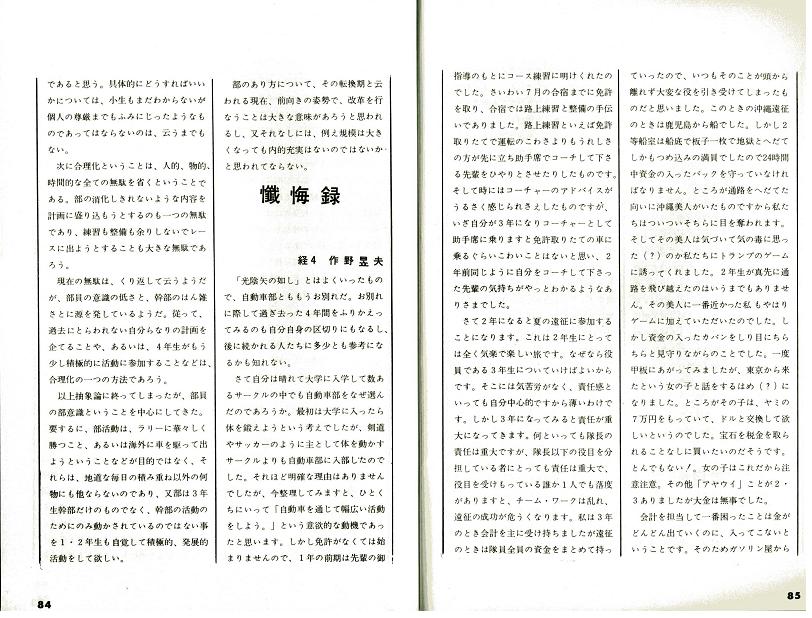 であると思う。具体的にどうすればいい
かについては、小生もまだわからないが
個人の尊厳までもふみにじったようなも
のであってはならないのは、云うまでも
ない。
次に合理化ということは、人的、物的、
時間的な全ての無駄を省くということで
ある。部の消化しきれないような内容を
計画に盛り込もうとするのも一つの無駄
であり、練習も整備も余りしないでレー
スに出ようとすることも大きな無駄であ
ろう。
現在の無駄は、くり返して云うようだ
が、部員の意識の低さと、幹部のはん雑
さとに源を発しているようだ。従って、
過去にとらわれない自分らなりの計画を
企てることや、あるいは、4年生がもう
少し積極的に活動に参加することなどは、
合理化の一つの方法であろう。
以上抽象論に終ってしまったが、部員
の部意識ということを中心にしてきた。
要するに、部活動は、ラリーに華々しく
勝つこと、あるいは海外に車を駆って出
ようということなどが目的ではなく、そ
れらは、地道な毎日の積み重ね以外の何
物にも他ならないのであり、又部は3年
生幹部だけのものでなく、幹部の活動の
ためにのみ動かされているのではない事
を1・2年生も自覚して積極的、発展的
活動をして欲しい。
部のあり方について、その転換期と云
われる現在、前向きの姿勢で、改革を行
なうことは大きな意味があろうと思われ
るし、又それなしには、例え規模は大き
くなっても内的充実はないのではないか
と思われてならない。
懺悔録
経4 作野昱夫
「光陰矢の如し」とはよくいったもの
で、自動車部とももうお別れだ。お別れ
に際して過ぎ去った4年間をふりかえっ
てみるのも自分自身の区切りにもなるし、
後に続かれる人たちに多少とも参考にな
るかも知れない。
さて自分は晴れて大学に入学して数あ
るサークルの中でも自動車部をなぜ選ん
だのであろうか。最初は大学に入ったら
体を鍛えようという考えでしたが、剣道
やサッカーのように主として体を動かす
サークルよりも自動車部に入部したので
した。それほど明確な理由はありません
でしたが、今整理してみますと、ひとく
ちにいって「自動車を通じて幅広い活動
をしよう。」という意欲的な動機であっ
たと思います。しかし免許がなくては始
まりませんので、1年の前期は先輩の御
84
指導のもとにコース練習に明けくれたの
でした。さいわい7月の合宿までに免許
を取り、合宿では路上練習と整備の手伝
いでありました。路上練習といえば免許
取りたてで運転のこわさよりもうれしさ
の方が先に立ち助手席でコーチして下さ
る先輩をひやりとさせたりしたものです。
そして時にはコーチャーのアドバイスが
うるさく感じられさえしたものですが、
いざ自分が3年になりコーチャーとして
助手席に乗りますと免許取りたての車に
乗るぐらいこわいことはないと思い、2
年前同じように自分をコーチして下さっ
た先輩の気持ちがやっとわかるようなあ
りさまでした。
さて2年になると夏の遠征に参加する
ことになります。これは2年生にとって
は全く気楽で楽しい旅です。なぜなら役
員である3年生についていけばよいから
です。そこには気苦労がなく、責任感と
いっても自分中心的ですから薄いわけで
す。しかし3年になってみると責任が重
大になってきます。何といっても隊長の
責任は重大ですが、隊長以下の役目を分
担している者にとっても責任は重大で、
役目を受けもっている誰か1人でも落度
がありますと、チーム・ワークは乱れ、
遠征の成功が危うくなります。私は3年
のとき会計を主に受け持ちましたが遠征
のときは隊員全員の資金をまとめて持っ
ていったので、いつもそのことが頭から
離れず大変な役を引き受けてしまったも
のだと思いました。このときの沖縄遠征
のときは鹿児島から船でした。しかし2
等船室は船底で板子一枚で地獄とへだて
しかもつめ込みの満員でしたので24時間
中資金の入ったバックを守っていなけれ
ばなりません。ところが通路をへだてた
向いに沖縄美人がいたものですから私た
ちはついついそちらに目を奪われます。
そしてその美人は気づいて気の毒に思っ
た(?)のか私たちにトランプのゲーム
に誘ってくれました。2年生が真先に通
路を飛び越えたのはいうまでもありませ
ん。その美人に一番近かった私もやはり
ゲームに加えていただいたのでした。し
かし資金の入ったカバンをしり目にちら
ちらと見守りながらのことでした。一度
甲板にあがってみましたが、東京から来
たという女の子と話をするはめ(?)に
なりました。ところがその子は、ヤミの
7万円をもっていて、ドルと交換して欲
しいというのでした。宝石を税金を取ら
れることなしに買いたいのだそうです。
とんでもない!。女の子はこれだから注
意注意。その他「アヤウイ」ことが2・
3ありましたが大金は無事でした。
会計を担当して一番困ったことは金が
どんどん出ていくのに、入ってこないと
いうことです。そのためガソリン屋から
85